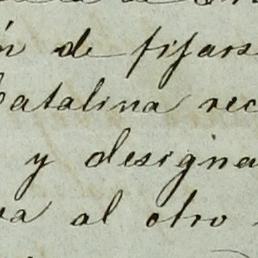 de fijars
Catalina rec
y designa
al otro